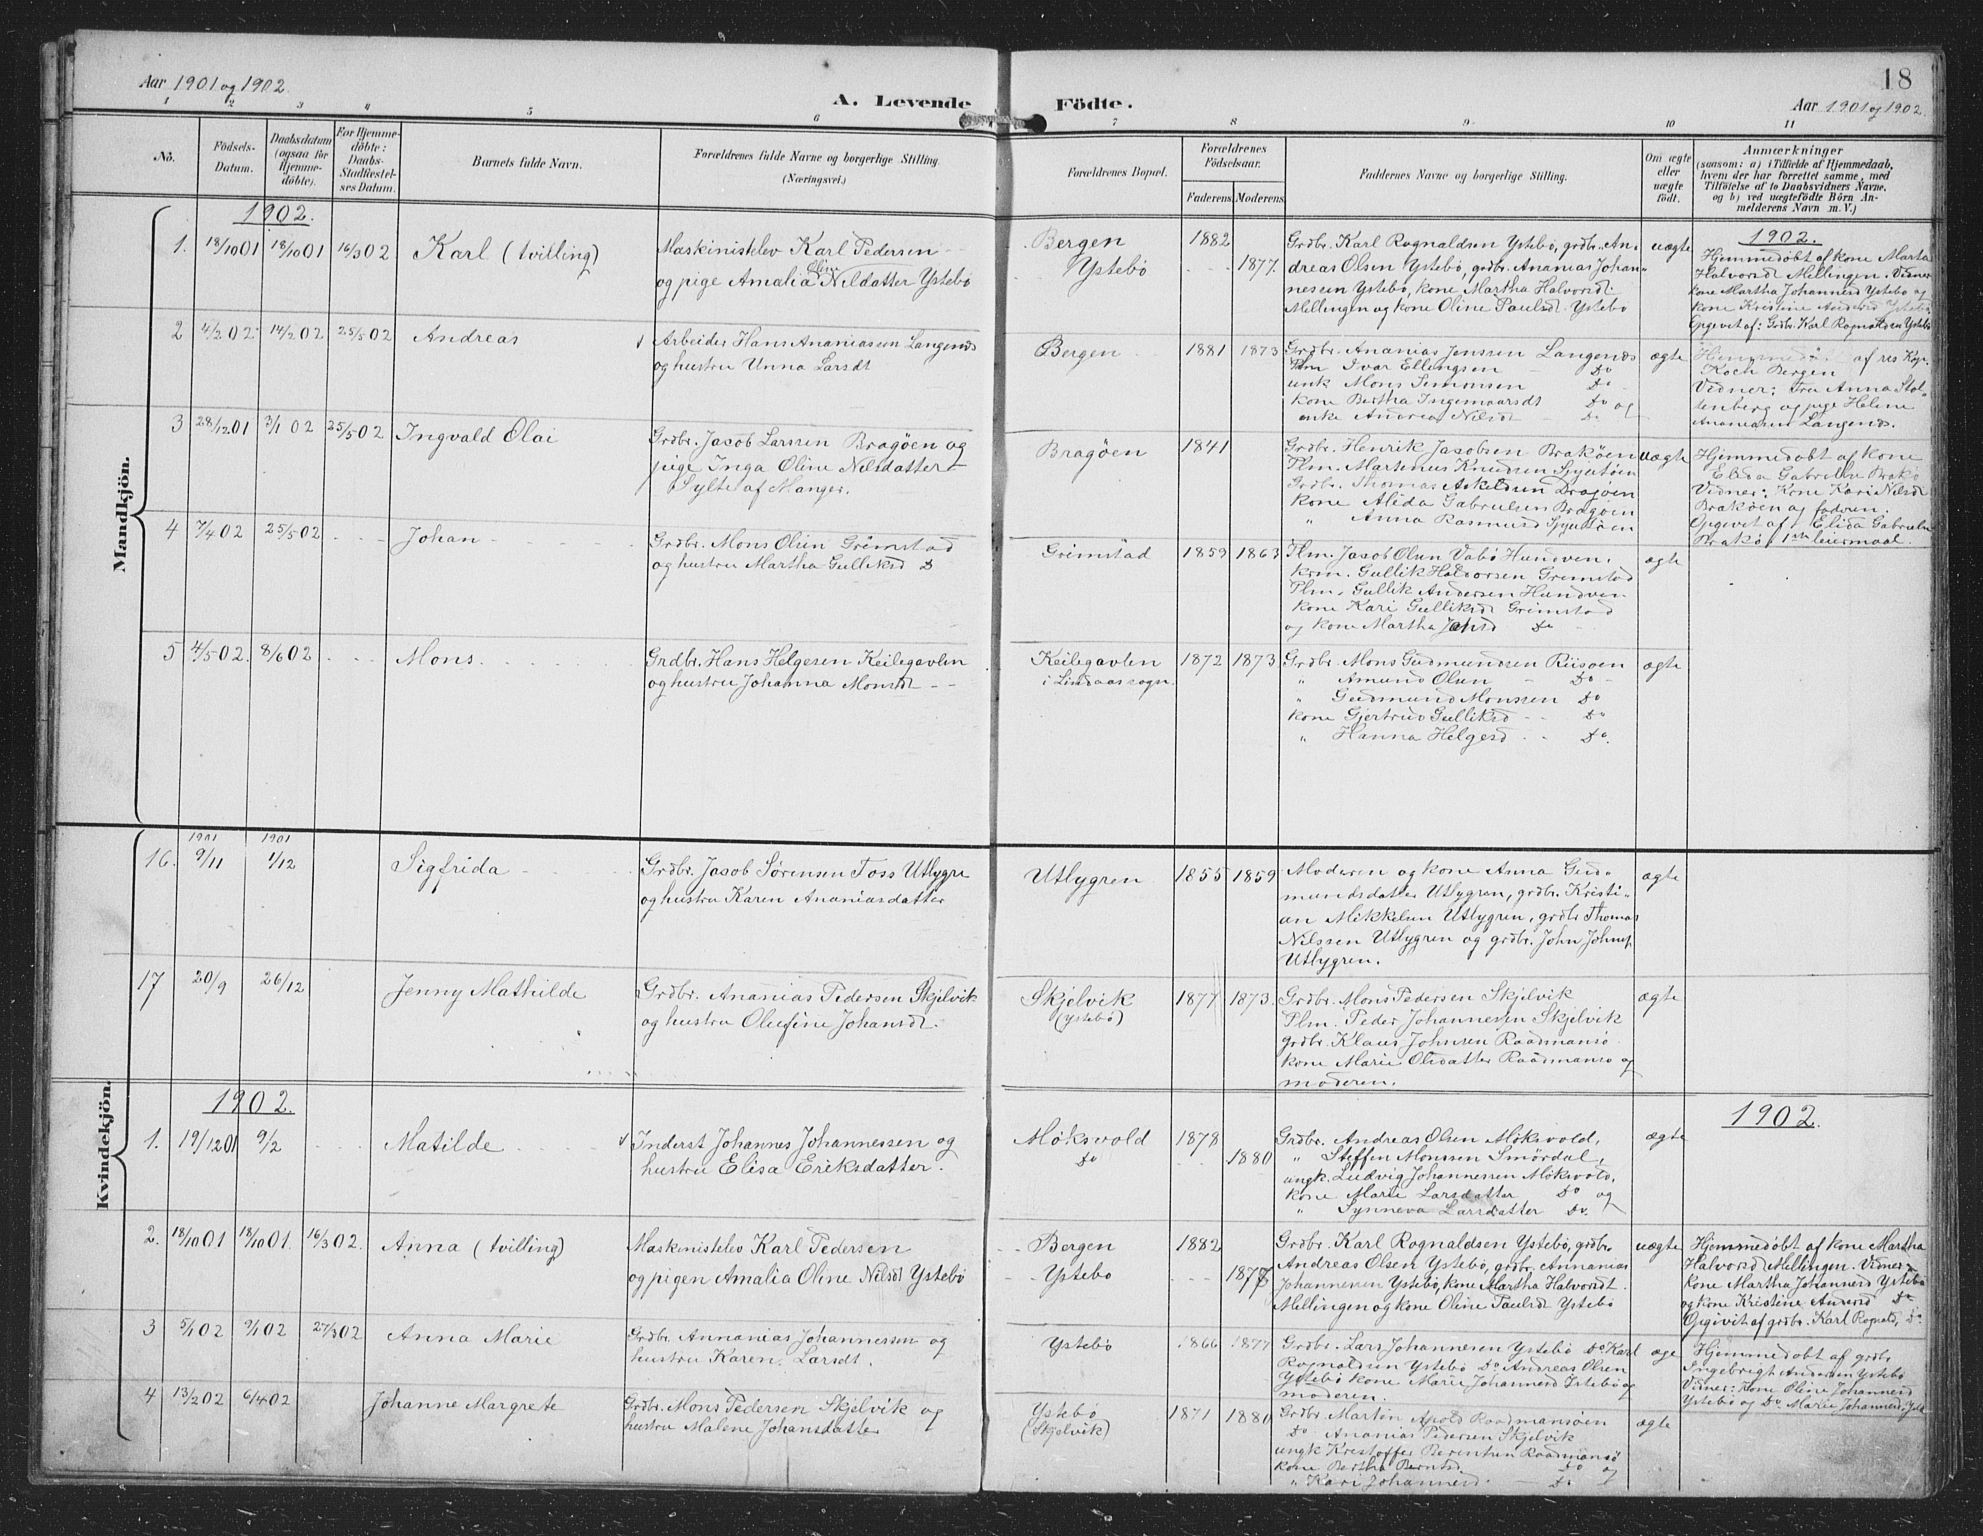 Aar 1901 og 1902.
A. Levende Födte.
18
Aar 1901 og 1902.
1 2 3 4 5 6 7 8 9 10 11
No.
Födsels-
Datum.
Daabsdatum
(ogsaa för
Hjemme-
döbte).
For Hjemme-
döbte:
Daabs-
Stadfæstel-
ses Datum.
Barnets fulde Navn.
Forældrenes fulde Navne og borgerlige Stilling.
(Næringsvei.)
Forældrenes Bopæl.
Forældrenes
Födselsaar.
Faderens Moderens
Faddernes Navne og borgerlige Stilling.
Om ægte
eller
uægte
födt.
Anmærkninger
(saasom: a) i Tilfælde af Hjemmedaab,
hvem der har forrettet samme, med
Tilföielse af to Daabsvidners Navne,
og b) ved uægtefödte Börn An-
melderens Navn m. V.)
Mandkjön.
1902.
1. 18/10 01 18/10 01 16/3 02 Karl (tvilling)
Maskinistelev Karl Pedersen
og pige Amalia Oline Nilsdatter Ystebö
Bergen
Ystebö
1882 1877.
Grdbr. Karl Rognaldsen Ystebö, grdbr. An-
dreas Olsen Ystebö, grdbr. Ananias Johan-
nesen Ystebö, kone Martha Halvorsd.
Mellingen og kone Oline Paulsdt Ystebö
uægte
1902.
Hjemmedöbt af kone Martha
Halvorsdt Mellingen. Vidner
kone Martha Johannesd Ystebö og
kone Kristine Andersd Ystebö
Opgevet af: Grdbr. Karl Rognaldsen Ystebö
2 4/2 02 14/2 02 25/5 02 Andreas
Arbeider Hans Ananiassen Langenæs
og hustru Unna Larsdt
Bergen
1881 1873
Grdbr. Ananias Jenssen Langenæs
Plm Ivar Ellingsen Do
unk Mons Simonsen Do
kone Bertha Ingemaarsdt Do og
enke Andrea Nilsdt Do
ægte
af res. Kap.
Koch Bergen
Vidner: Fru Anna Stol-
tenberg og pige Helene
Ananiasen Langenæs.
3 28/12 01 3/1 02 25/5 02 Ingvald Olai
Grdbr. Jacob Larssen Bragöen og
pige Inga Oline Nilsdatter
Sylte af Manger.
Bragöen
1841
Grdbr. Henrik Jacobsen Braköen
Plm. Martenus Knudsen
Grdbr. Thomas Askeldsen Bragöen
kone Alida Gabrielsen Bragöen
" Anna Rasmusd
uægte
Hjemmedöbt af kone
Elida Gabrielsen Brakö
Vidner: Kone Kari Nilsdt
Braköen og fadren.
Opgevet af Elida Gabrielsen
Brakö 1ste leiermaal.
4 7/4 02 25/5 02 Johan
Grdbr. Mons Olsen Grimstad
og hustru Martha Gulliksd Do
Grimstad
1859 1863
Plm. Jacob Olsen Vabö Hundven.
krm. Gullik Halvorsen Gremstad
Plm. Gullik Andersen Hundven
kone Kari Gulliksd Grimstad
og kone Martha Do
ægte
5 4/5 02. 8/6 02 Mons.
Grdbr. Hans Helgesen Keilegavlen
og hustru Johanna Monsdt
Keilegavlen
i Lindaas sogn.
1872 1873
Grdbr. Mons Gudmundsen Riisöen
" Amund Olsen Do
" Gudmund Monssen Do
kone Gjertrud Gulliksd Do
" Hanna Helgesd Do.
ægte
Kvindekjön.
1901 1901
16. 9/11 1/12 Sigfrida
Grdbr. Jacob Sörensen Foss Utlygre
og hustru Karen Ananiasdatter
Utlygren
1855 1859
Moderen og kone Anna Gud-
mundsdatter Utlygren, grdbr. Kristi-
an Mikkelsen Utlygren, grdbr Thomas
Nilssen Utlygren og grdbr. John
Utlygren.
ægte
17 20/9 26/12 Jenny Mathilde
Grdbr. Ananias Pedersen Skjelvik
og hustru Olufine Johansdt.
Skjelvik
(Ystebö)
1877 1873.
Grdbr. Mons Pedersen Skjelvik
Plm. Peder Johannesen Skjelvik
grdbr. Klaus Johnsen Raadmansö
kone Marie Olsdatter Raadmansö og
moderen.
ægte
1902.
1. 19/12 01 9/2 Matilde
Inderst Johannes Johannessen og
hustru Elisa Eriksdatter.
Mökswold
Do
1878 1880
Grdbr. Andreas Olsen Mökswold,
" Steffen Monssen Smördal,
ungk. Ludvig Johannessen Mökswold,
kone Marie Larsdatter Do og
" Synneva Larsdatter Do.
ægte
1902.
2. 18/10 01 18/10 01. 16/3 02. Anna (tvilling)
Maskinistelev Karl Pedersen
og pigen Amalia Oline Nilsdt Ystebö
Bergen
Ystebö
1882 1877
Grdbr. Karl Rognaldsen Ystebö, grdbr.
Andreas Olsen Ystebö, grdbr. Annanias
Johannesen Ystebö, kone Martha Halvorsdt.
Mellingen og kone Oline Paulsdt Ystebö
uægte
Hjemmedöbt af kone Martha
Halvorsd Mellingen. Vidner
kone Martha Johannesd Ystebö
og kone Kristine Andersd Do
Opgivet af grdbr. Karl Rognalds. Do
3 5/1 02 9/1 02 27/3 02 Anna Marie
Grdbr. Annanias Johannessen og
hustru Karen Larsdt.
Ystebö
1866 1877
Grdbr. Lars Johannesen Ystebö Do Karl
Rognaldsen Ystebö Do Andreas Olsen
Ystebö kone Marie Johannesd Ystebö og
moderen.
ægte
Hjemmedöbt af grdbr.
Ingebrigt Andersen Ystebö
Vidner: Kone Oline Johannesd
Ystebö og Do Marie Johannesd. Yst.
4 13/2 02 6/4 02 Johanne Margrete
Grdbr. Mons Pedersen Skjelvik og
hustru Malene Johansdatter
Ystebö
(Skjelvik)
1871 1880
Grdbr. Martin Apold Raadmansöen
Do Ananias Pedersen Skjelvik
ungk Kristoffer Berentsen Raadmansö
kone Bertha Berntsd Do og
" Kari Johannesd. Do
ægte